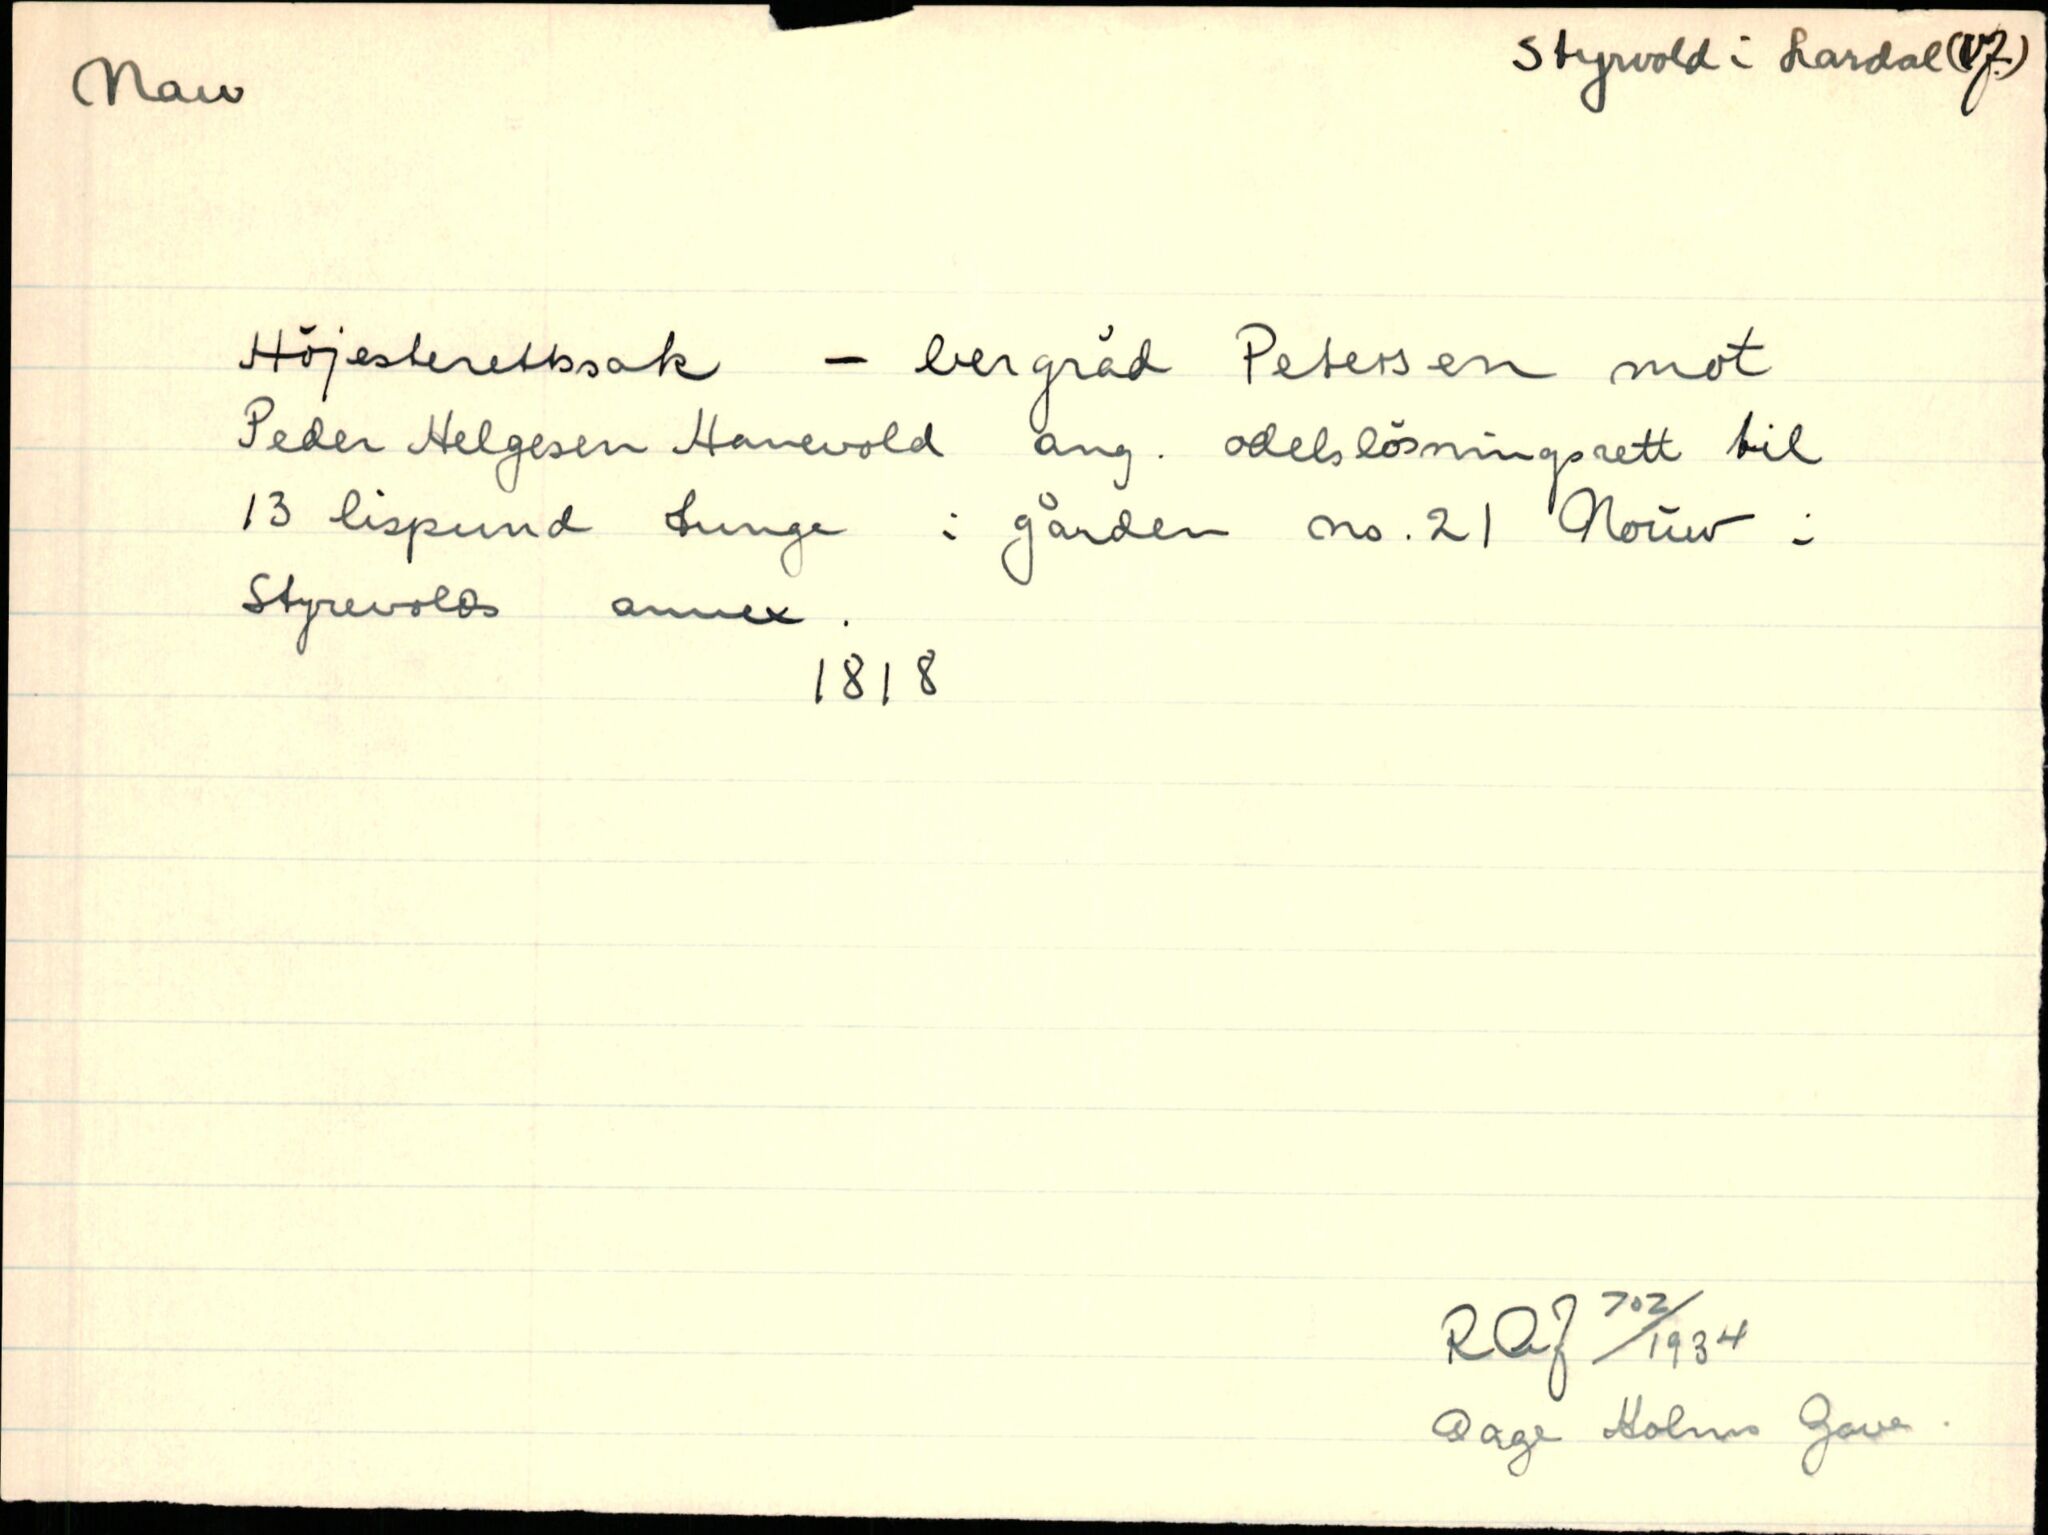 Nauv
Styrvold i Lardal (Vf.)
Höjesterettssak – bergråd Petersen mot
Peder Helgesen Hanevold ang. odelslösningsrett til
13 lispund tunge i gården no. 21 Nouw i
Styrevolds annex.
1818
RA J 702/1934
Aage Holms Gave.